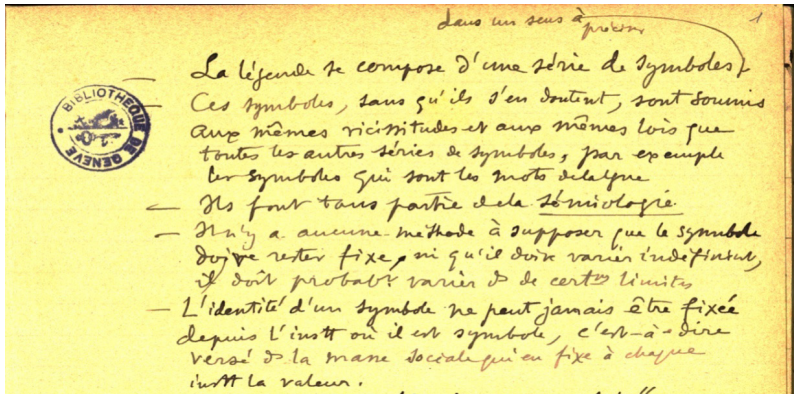 dans un sens à préciser
1
— La légende se compose d'une série de symboles
— Ces symboles, sans qu'ils s'en doutent, sont soumis
aux mêmes vicissitudes et aux mêmes lois que
toutes les autres séries de symboles, par exemple
les symboles qui sont les mots de la lgue
— Ils font tous partie de la sémiologie.
— Il n'y a aucune méthode à supposer que le symbole
doive rester fixe, ni qu'il doive varier indéfinient,
il doit probabt varier ds de certnes limites
— L'identité d'un symbole ne peut jamais être fixée
depuis l'instt où il est symbole, c'est-à-dire
versé ds la masse sociale qui en fixe à chaque
instt la valeur.
BIBLIOTHEQUE DE GENEVE